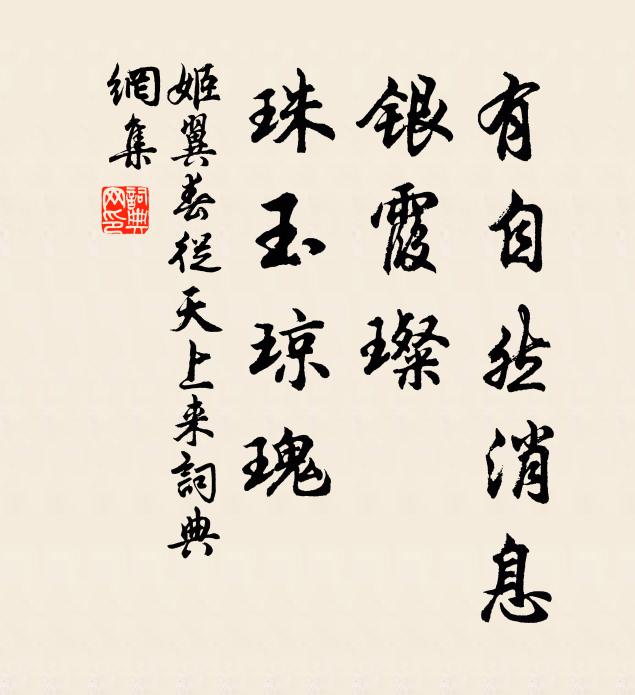 有自然消息
银霞璨
珠玉琼瑰
姬翼春從天上来詞典
網集
詞典網印